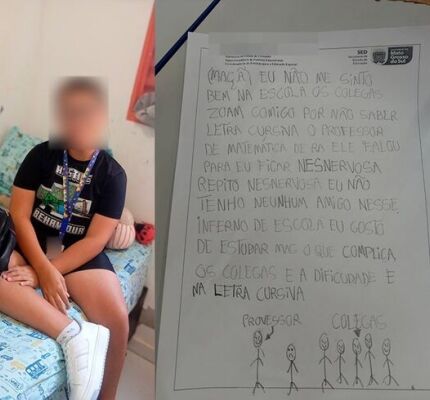 BEHAVIOUR
SED
Secretaria de
Estado de
Educação
Mato
Grosso
do Sul
(MAÇÃ) EU NÃO ME SINTO
BEM NA ESCOLA OS COLEGAS
ZOAM COMIGO POR NÃO SABER
LETRA CURSIVA O PROFESSOR
DE MATEMÁTICA DE RA ELE FALOU
PARA EU FICAR NESNERVOSA
REPITO NESNERVOSA EU NÃO
TENHO NEUNHUM AMIGO NESSE
INFERNO DE ESCOLA EU GOSTO
DE ESTUDAR MAS O QUE COMPLICA
OS COLEGAS E A DIFICUDADE E
NA LETRA CURSIVA
PROVESSOR COLEGAS